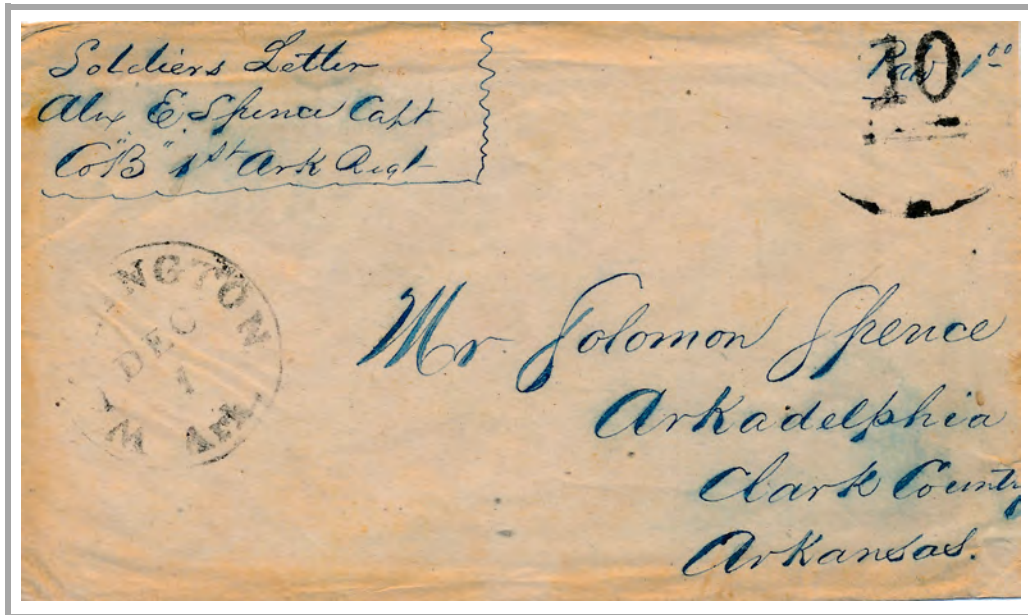 Soldiers Letter
Alex E Spence Capt
Co "B" 1st Ark Regt
Paid 1 00
10
W INGTON
DEC
1
Ark.
Mr Solomon Spence
Arkadelphia
Clark County
Arkansas.